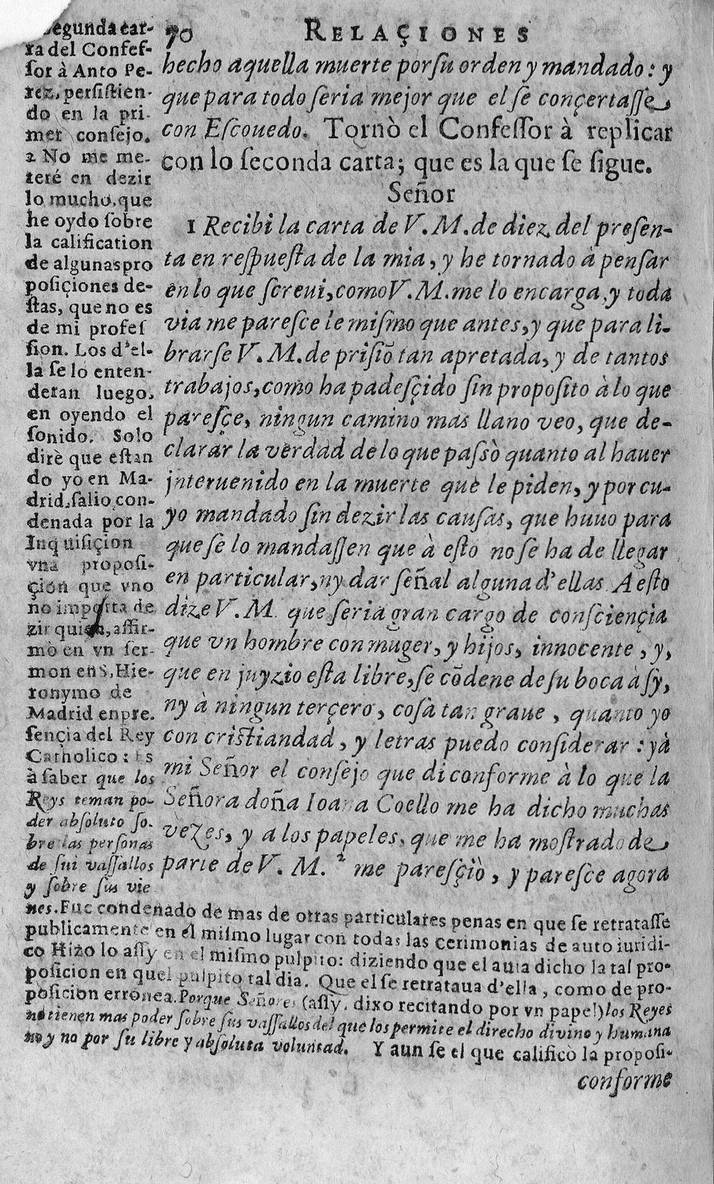 70 RELAÇIONES
hecho aquella muerte por su orden y mandado: y
que para todo seria mejor que el se conçertasse
con Escouedo. Tornò el Confessor à replicar
con lo segunda carta; que es la que se sigue.
Señor
1 Recibi la carta de V. M. de diez del presen-
ta en respuesta de la mia, y he tornado à pensar
en lo que screui, como V. M. me lo encarga, y toda
via me paresce le mismo que antes, y que para li-
brarse V. M. de prisiõ tan apretada, y de tantos
trabajos, como ha padesçido sin proposito à lo que
paresçe, ningun camino mas llano veo, que de-
clarar la verdad de lo que passò quanto al hauer
jnteruenido en la muerte que le piden, y por cu-
yo mandado sin dezir las causas, que huuo para
que se lo mandassen que à esto no se ha de llegar
en particular, ny dar señal alguna d'ellas. A esto
dize V. M. que seria gran cargo de consciençia
que vn hombre con muger, y hijos, innocente, y,
que en juyzio esta libre, se cõdene de su boca à sy,
ny à ningun terçero, cosa tan graue, quanto yo
con cristiandad, y letras puedo considerar: yà
mi Señor el consejo que di conforme à lo que la
Señora doña Ioana Coello me ha dicho muchas
vezes, y a los papeles, que me ha mostrado de
parte de V. M. ² me paresçiò, y paresce agora
segunda car-
ta del Confes-
sor à Anto Pe-
rez, persistien-
do en la pri-
mer consejo.
2 No me me-
teré en dezir
lo mucho, que
he oydo sobre
la calification
de algunas pro
posiçiones de-
stas, que no es
de mi profes
sion. Los d'el-
la se lo enten-
deran luego,
en oyendo el
sonido. Solo
dirè que estan
do yo en Ma-
drid, salio con-
denada por la
Inquisiçion
vna proposi-
çión que vno
no importa de
zir quien, affir-
mò en vn ser-
mon en S. Hie-
ronymo de
Madrid en pre-
sençia del Rey
Catholico: Es
à saber que los
Reys teman po-
der absoluto so-
bre las personas
de sui vassallos
y sobre sus vie
nes. Fue condenado de mas de otras particulares penas en que se retratasse
publicamente en el mismo lugar con todas las cerimonias de auto iuridi-
co Hizo lo assy en el mismo pulpito: diziendo que el auia dicho la tal pro-
posicion en quel pulpito tal dia. Que el se retrataua d'ella, como de pro-
posicion erronea. Porque Señores (assy, dixo recitando por vn papel) los Reyes
no tienen mas poder sobre sus vassallos del que los permite el direcho divino y humana
no y no por su libre y absoluta voluntad. Y aun se el que califico la proposi-
conforme